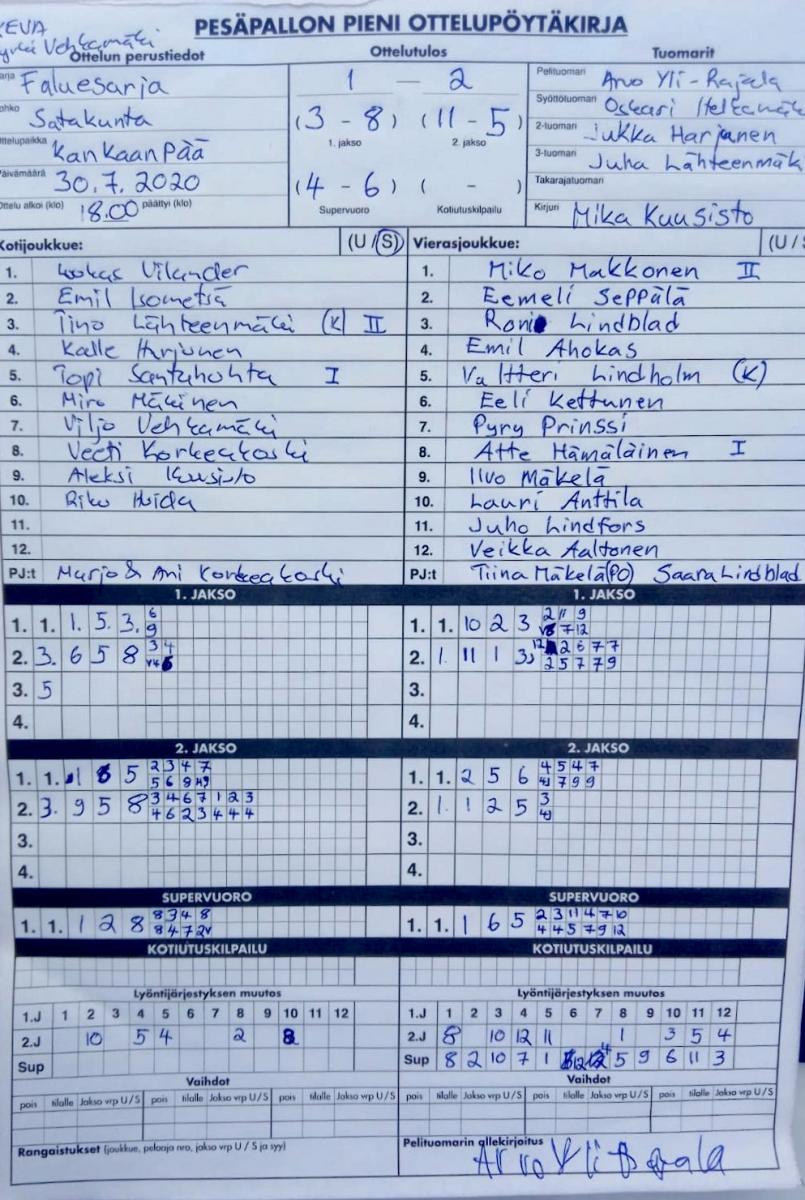 PESÄPALLON PIENI OTTELUPÖYTÄKIRJA
Vehkamäki
Ottelun perustiedot
Ottelutulos
Tuomarit
Faluesarja
1 — 2
Pelituomari Arvo Yli-Rajala
Satakunta
(3 - 8) (11 - 5)
Syöttötuomari Oskari
KanKaanPää
1. jakso 2. jakso
2-tuomari Jukka Harjunen
30.7.2020
(4 - 6) ( - )
3-tuomari Juha Lähteenmäk
Takarajatuomari
18.00 päättyi (klo)
Supervuoro Kotiutuskilpailu
Kirjuri Mika Kuusisto
Kotijoukkue: (U / S) Vierasjoukkue: (U / S
1. Lookas Vilander
1. Miko Makkonen II
2. Emil Isometsä
2. Eemeli Seppälä
3. Tino Lähteenmäki (K) II
3. Roni Lindblad
4. Kalle Harjunen
4. Emil Ahokas
5. Topi Santahuhta I
5. Valtteri Lindholm (K)
6. Miro Mäkinen
6. Eeli Kettunen
7. Viljo Vehkamäki
7. Pyry Prinssi
8. Veeti Korkeakoski
8. Atte Hämäläinen I
9. Aleksi Kuusisto
9. Iivo Mäkelä
10. Riku
10. Lauri Anttila
11.
11. Juho Lindfors
12.
12. Veikka Aaltonen
PJ:t Marjo & Ani Korkeakoski
PJ:t Tiina Mäkelä (PO) Saara Lindblad
1. JAKSO 1. JAKSO
1. 1. 1. 5. 3. 6
9
1. 1. 10 2 3 2 11 9
7 12
2. 3. 6 5 8 3 4
2. 1. 11 1 3 12 2 6 7 7
2 5 7 7 9
3. 5
3.
4.
4.
2. JAKSO 2. JAKSO
1. 1. 1 5 2 3 4 7
5 6 8
1. 1. 2 5 6 4 5 4 7
7 9 9
2. 3. 9 5 8 3 4 6 7 1 2 3
4 6 2 3 4 4 4
2. 1. 1 2 5 3
3.
3.
4.
4.
SUPERVUORO SUPERVUORO
1. 1. 1 2 8 8 3 4 8
8 4 7 2v
1. 1. 1 6 5 2 3 11 4 7 10
4 4 5 7 9 12
KOTIUTUSKILPAILU KOTIUTUSKILPAILU
Lyöntijärjestyksen muutos Lyöntijärjestyksen muutos
1.J 1 2 3 4 5 6 7 8 9 10 11 12
1.J 1 2 3 4 5 6 7 8 9 10 11 12
2.J 10 5 4 2 8
2.J 8 10 12 11 1 3 5 4
Sup
Sup 8 2 10 7 1 4 5 9 6 11 3
Vaihdot Vaihdot
pois tilalle Jakso vrp U / S pois tilalle Jakso vrp U / S pois tilalle Jakso vrp U / S
pois tilalle Jakso vrp U / S pois tilalle Jakso vrp U / S pois tilalle Jakso vrp U / S
Rangaistukset (joukkue, pelaaja nro, jakso vrp U / S ja syy)
Pelituomarin allekirjoitus